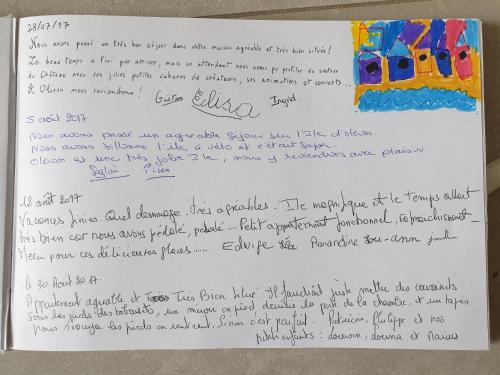 28/07/17
Nous avons passé un très bon séjour dans votre maison agréable et très bien située!
Le beau temps a fini par arriver, mais en attendant nous avons pu profiter du sentier
du Château avec ses jolies petites cabanes de créateurs, ses animations et concerts...
A Oléron nous reviendrons! Gaëtan Elisa Ingrid.
5 août 2017
Nous avons passé un agréable séjour sur l'Ile d'oléron.
Nous avons sillonné l'ile à vélo et c'était super.
Oléron est une très jolie Ile, nous y reviendrons avec plaisir
12 août 2017
Vacances finies. Quel dommage. très agréables. Ile magnifique et le temps allait
très bien car nous avons pédalé, pédalé.... Petit appartement fonctionnel,
Merci pour ces délicieuses glaces...... Edwige Amandine Lou-ann
le 30. Août 2017
Appartement agréable et Très Bien situé. Il faudrait juste mettre des caoutchouts
sous les pieds des tabourets, un miroir en pied derrière la porte de la chambre, et un tapis
pour s'essuyer les pieds en rentrant. Sinon c'est parfait. Patricia, Philippe et nos
petits enfants: Louison, et Marius